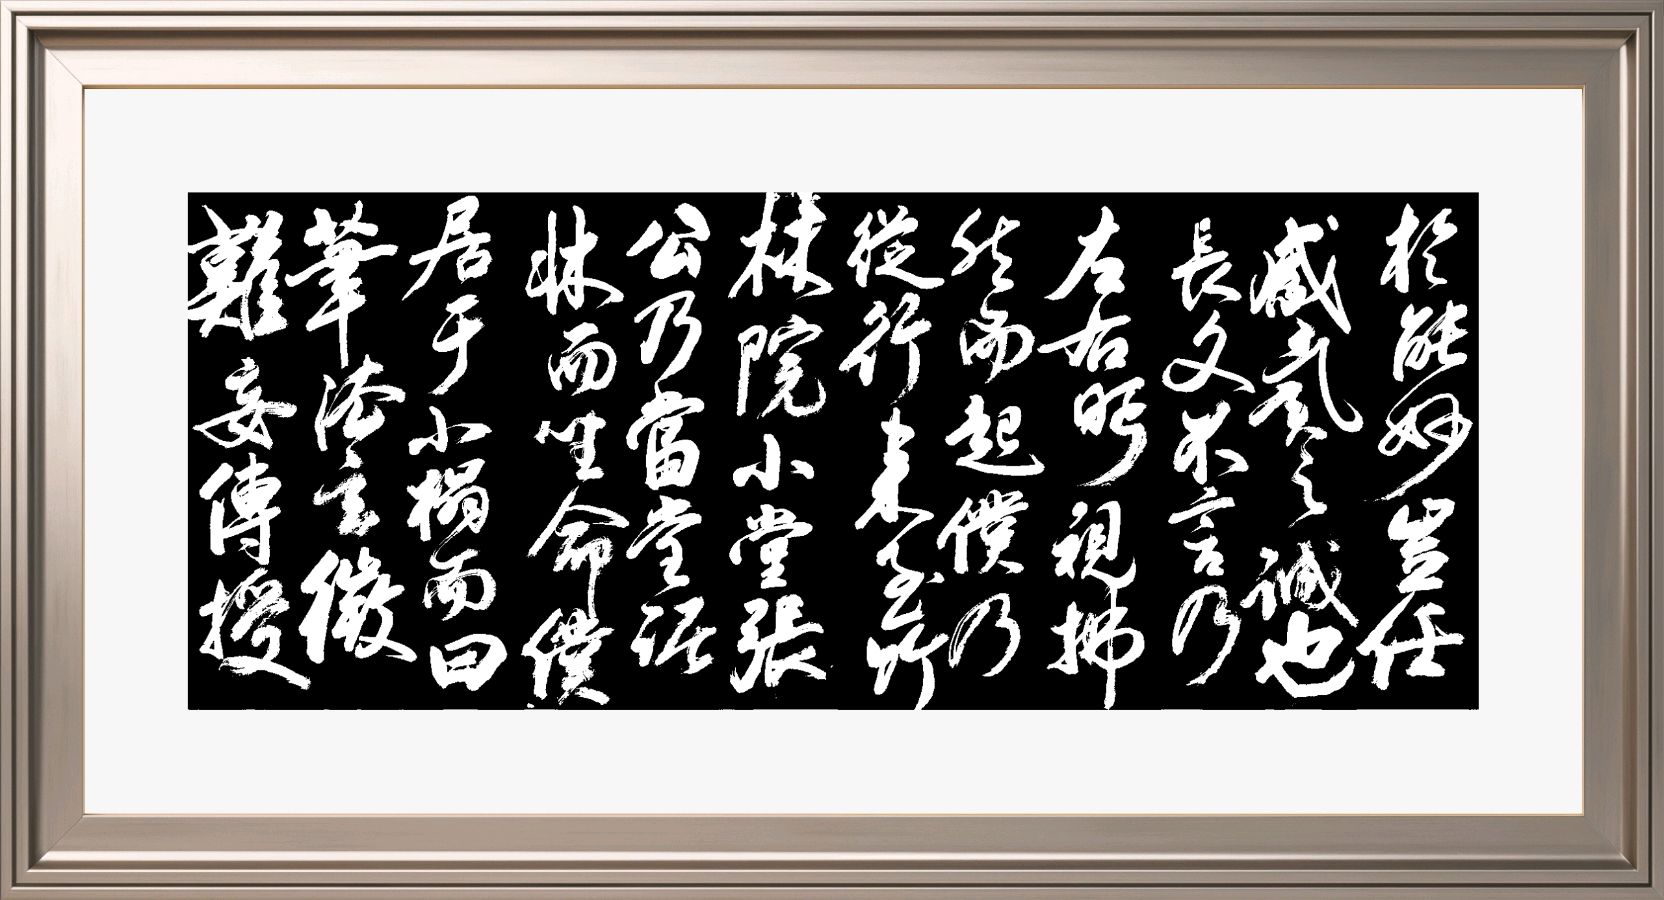 於能妙豈任
感戴之誠也
長久不言乃
左右眄視拂
然而起僕乃
從行來至竹
林院小堂張
公乃當堂踞
牀而坐命僕
居于小榻而曰
筆法玄微
難妄傳授